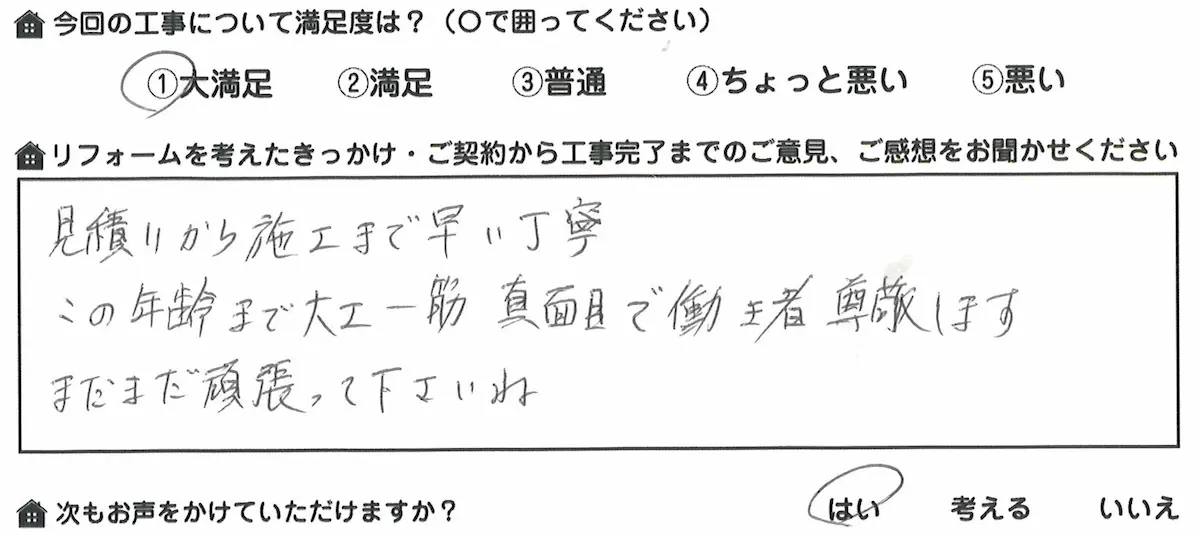 今回の工事について満足度は？（〇で囲ってください）
①大満足 ②満足 ③普通 ④ちょっと悪い ⑤悪い
リフォームを考えたきっかけ・ご契約から工事完了までのご意見、ご感想をお聞かせください
見積りから施工まで早い丁寧
この年齢まで大工一筋 真面目で働き者 尊敬します
まだまだ頑張って下さいね
次もお声をかけていただけますか？ はい 考える いいえ